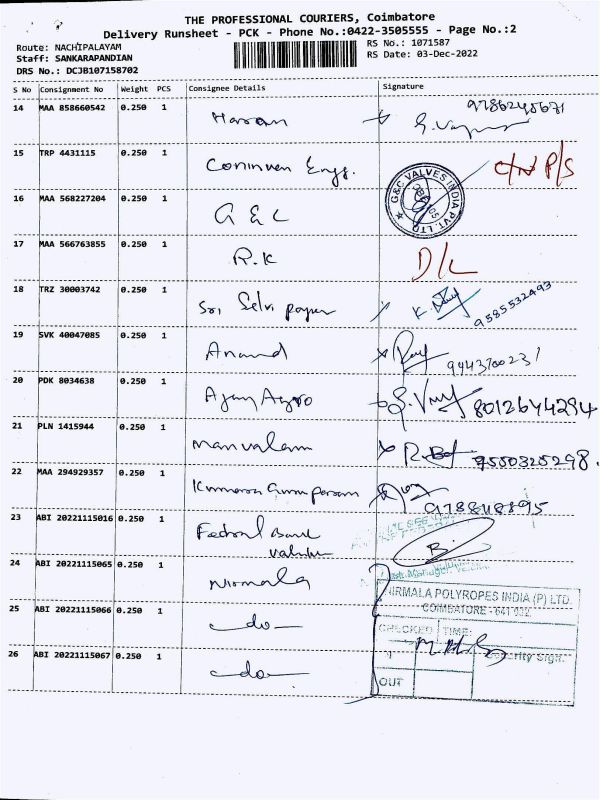 THE PROFESSIONAL COURIERS, Coimbatore
Delivery Runsheet - PCK - Phone No.:0422-3505555 - Page No.:2
Route: NACHIPALAYAM
RS No.: 1071587
Staff: SANKARAPANDIAN
RS Date: 03-Dec-2022
DRS No.: DCJB107158702
S No Consignment No Weight PCS Consignee Details Signature
14 MAA 858660542 0.250 1
15 TRP 4431115 0.250 1 Engg. P/S
G&C VALVES INDIA PVT. LTD
16 MAA 568227204 0.250 1 G & C
17 MAA 566763855 0.250 1 R.K D/L
18 TRZ 30003742 0.250 1 Sri Selvi 9585532493
19 SVK 40047085 0.250 1 Anand
20 PDK 8034638 0.250 1 8012644294
21 PLN 1415944 0.250 1 9550325298
22 MAA 294929357 0.250 1
23 ABI 20221115016 0.250 1 Federal Bank
24 ABI 20221115065 0.250 1 Nirmala
NIRMALA POLYROPES INDIA (P) LTD.
COIMBATORE - 641 032.
25 ABI 20221115066 0.250 1 -do-
CHECKED TIME:
Security Sign.
26 ABI 20221115067 0.250 1 -do-
OUT